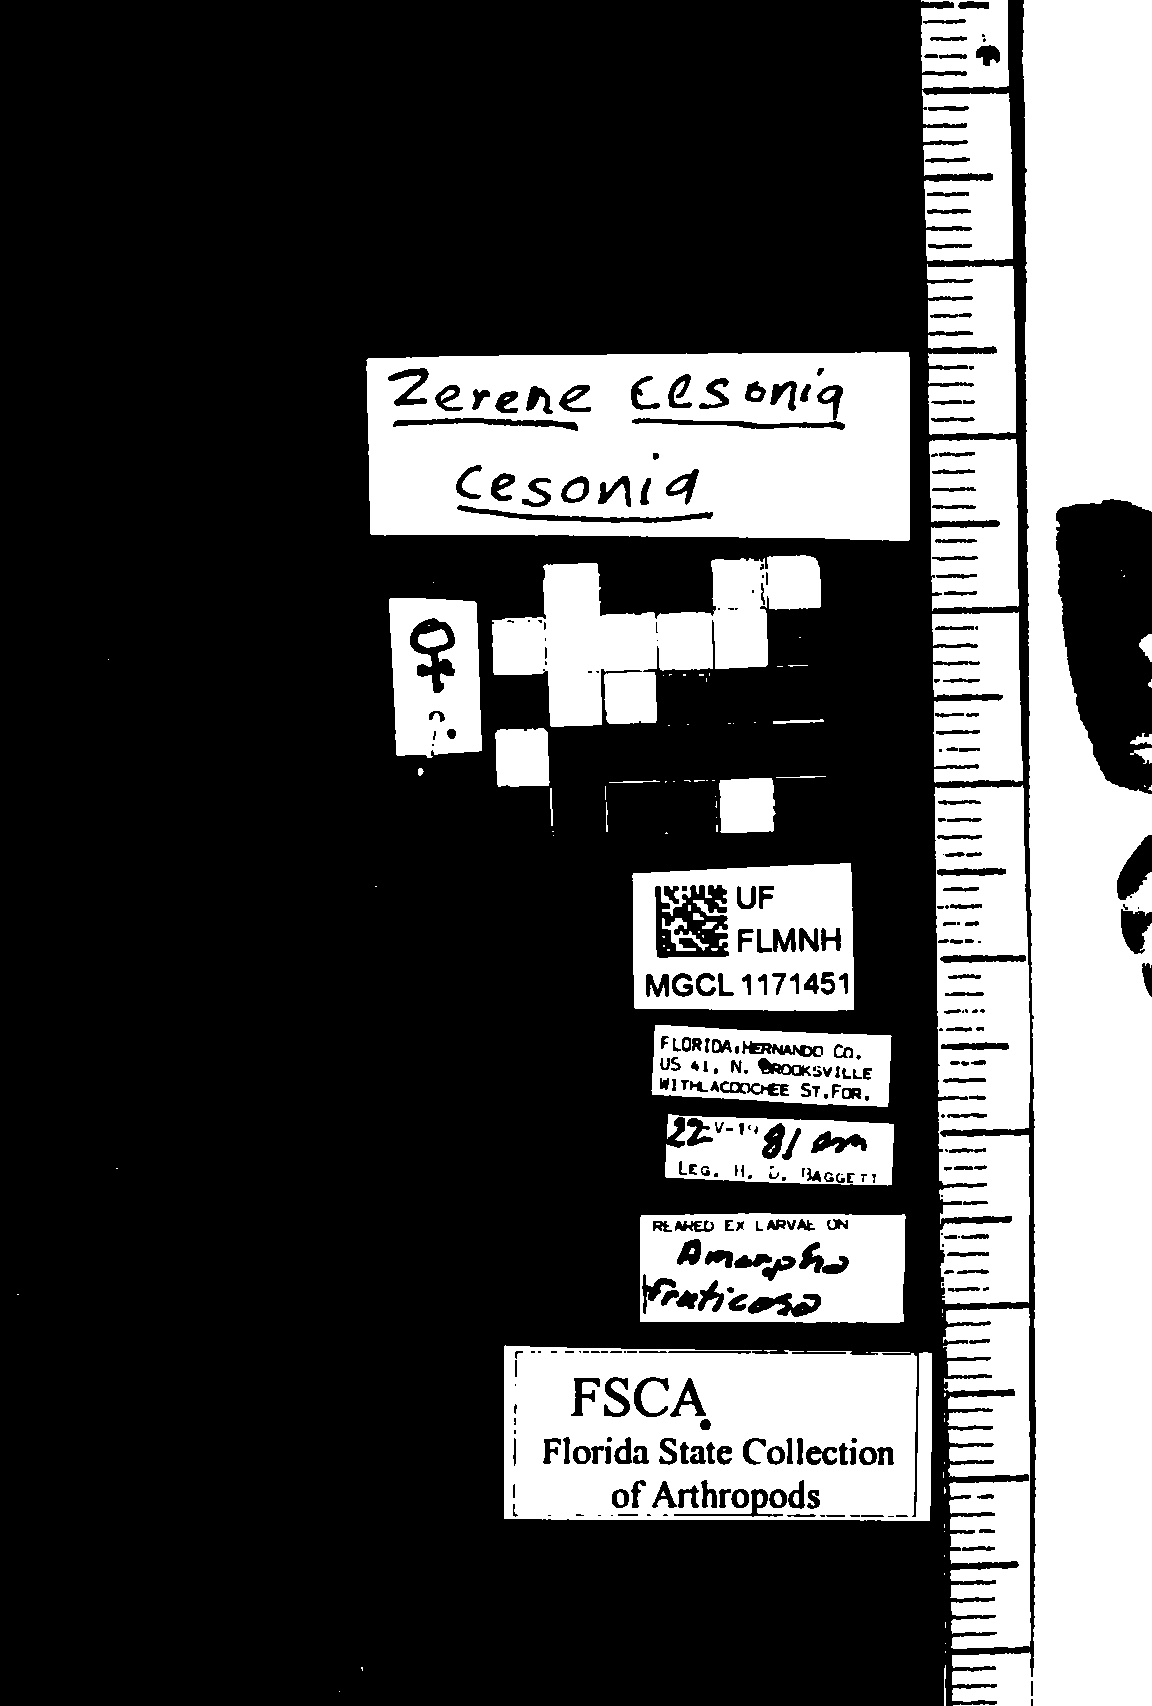 Zerene cesonia
cesonia
♀
?
UF
FLMNH
MGCL 1171451
FLORIDA, HERNANDO CO.
US 41, N. BROOKSVILLE
WITHLACOOCHEE ST. FOR.
22 V-19 81 em
LEG. H. D. BAGGETT
REARED EX LARVAE ON
Amorpha
fruticosa
FSCA
Florida State Collection
of Arthropods